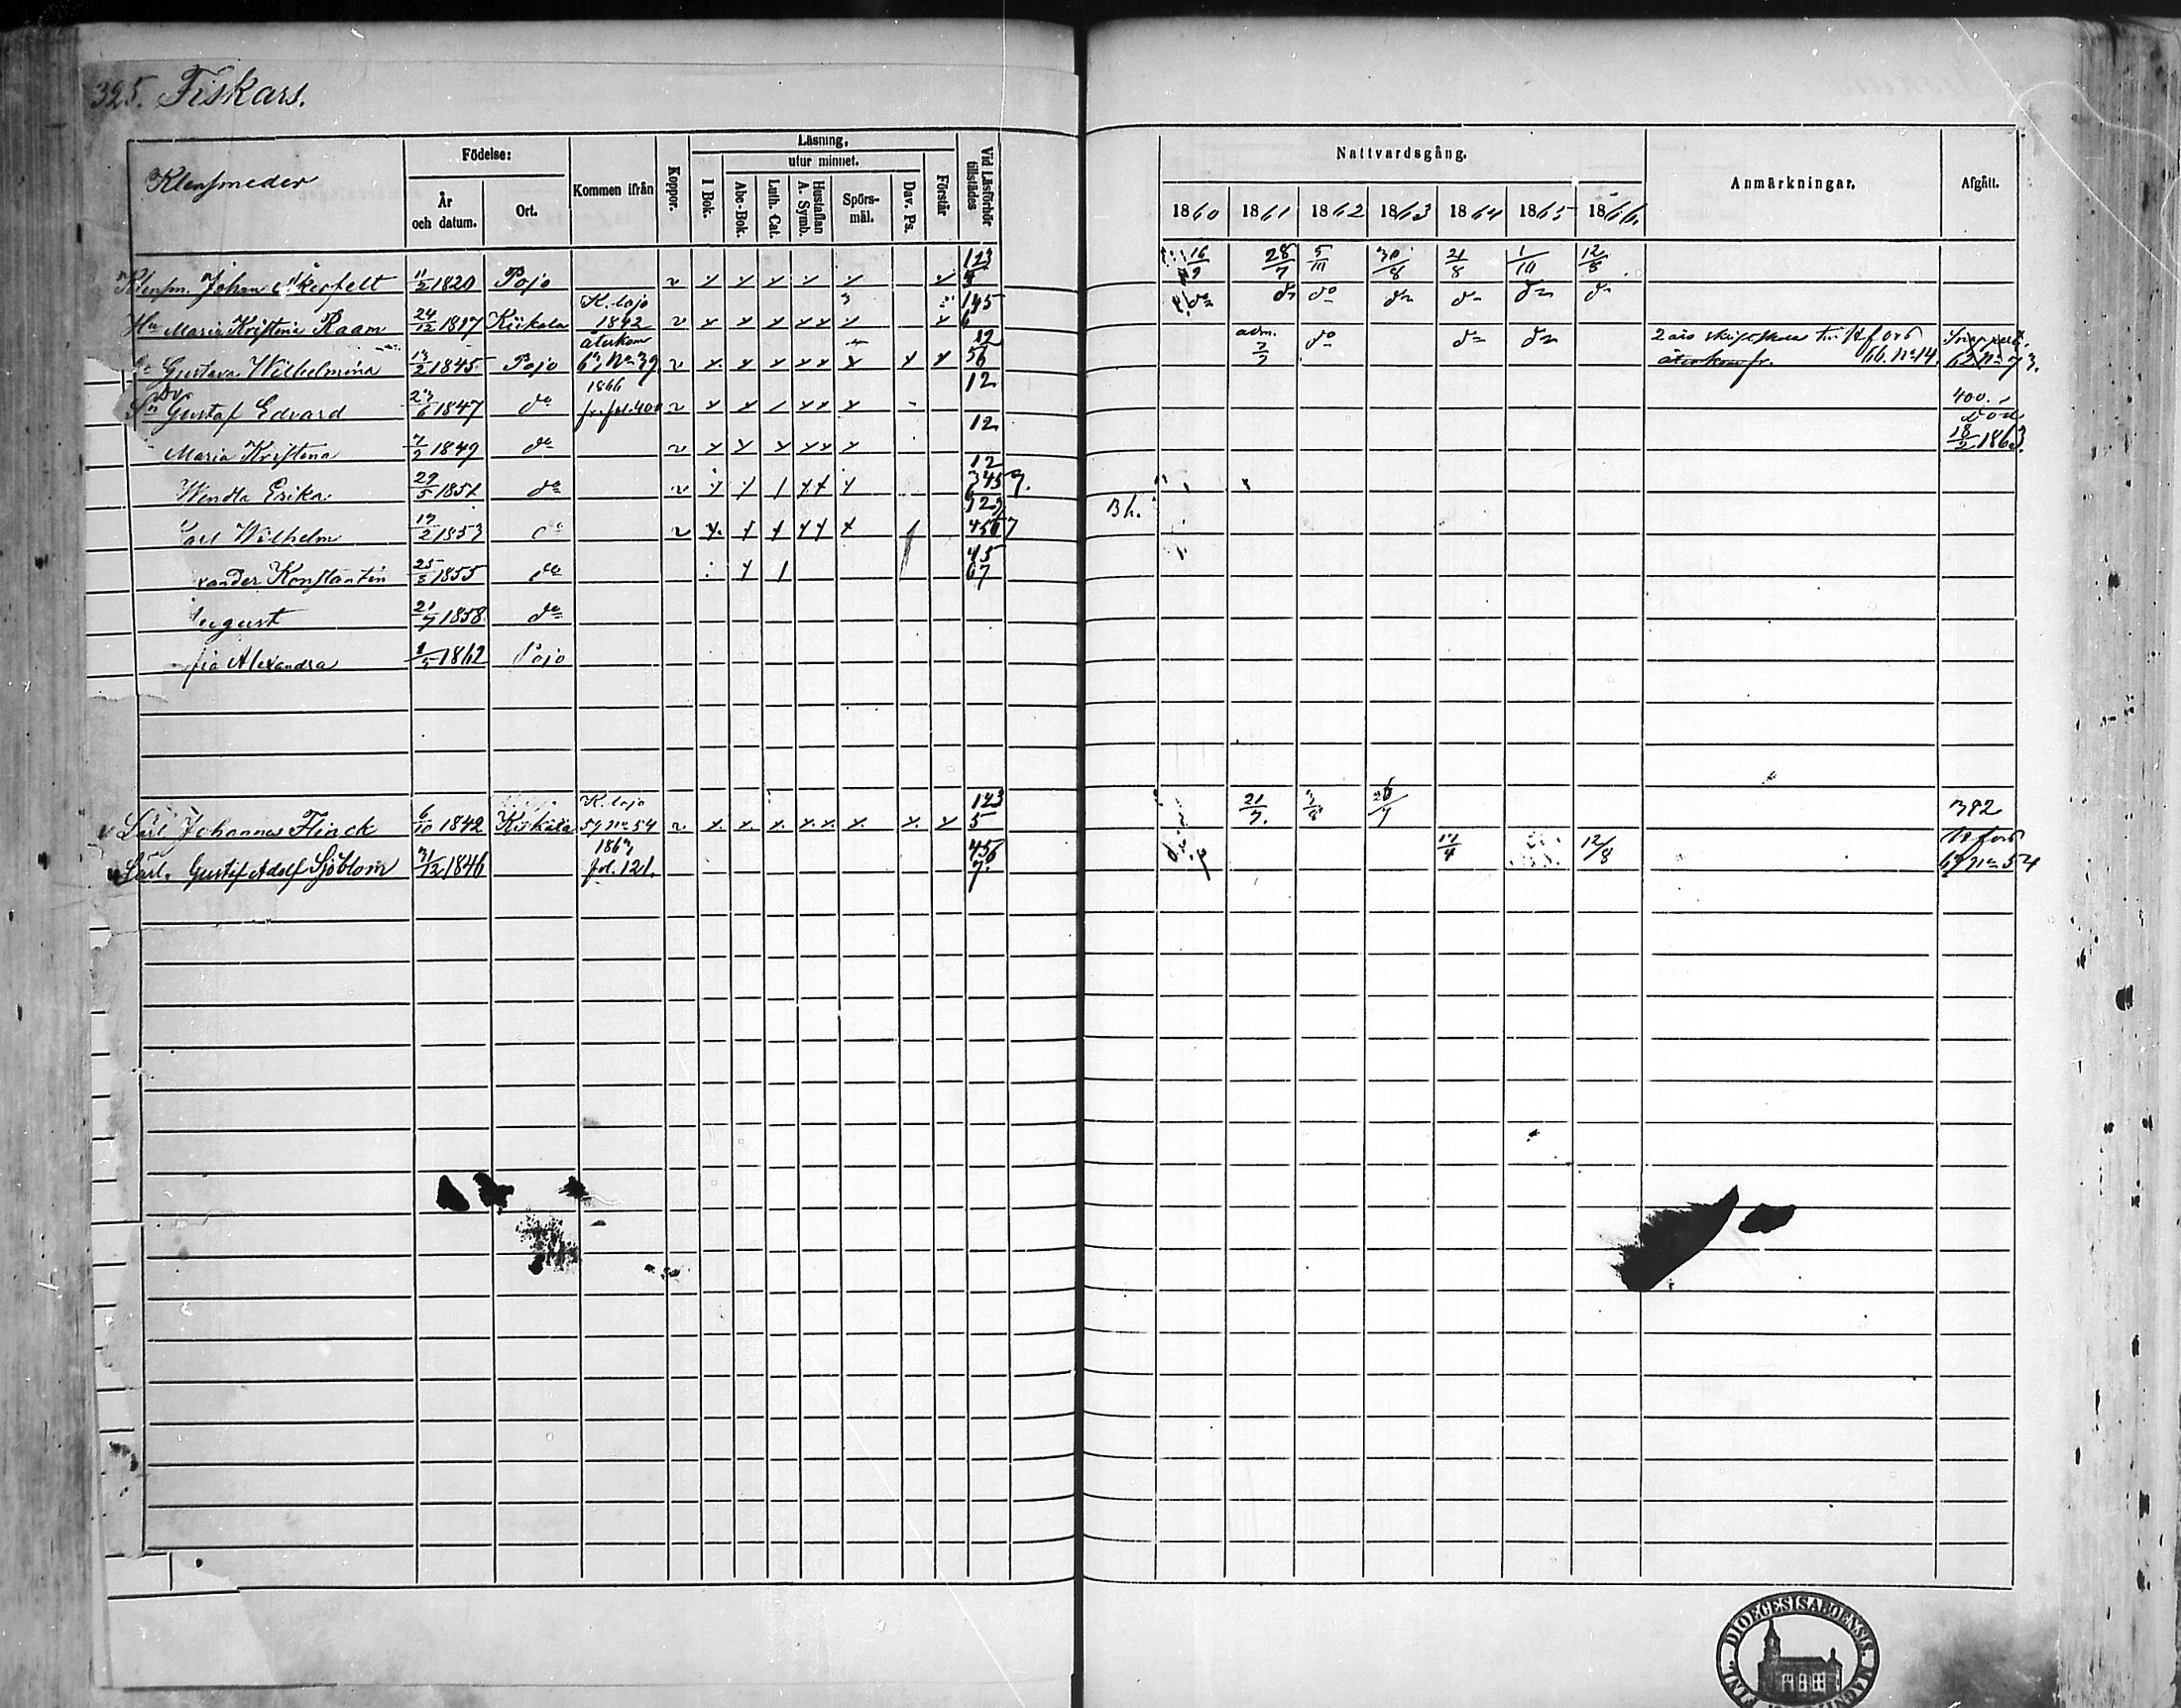 325. Fiskars.
Klensmeder
Födelse:
År och datum.
Ort.
Kommen ifrån
Koppor.
Läsning,
utur minnet.
I Bok.
Abc-Bok.
Luth. Cat.
Hustaflan A. Symb.
Spörs-mål.
Dav. Ps.
Förstår
Vid Läsförhör tillstädes
Nattvardsgång.
1860 1861 1862 1863 1864 1865 1866
Anmärkningar.
Afgått.
Klensm. Johan Åkerfelt 11/2 1820 Pojo v 123 16/9 28/7 5/10 30/8 21/8 1/10 12/8
Hu Maria Kristina Raam 24/12 1817 Kiikala K. lojo 1842 v 145 6 do do do do do do do
Gustava Wilhelmina 13/2 1845 Pojo återkom 61 No 39 v 12 56 adm. 7/7 do do do 2 års till H fors 66. No 14. återkom fr. 62 No 73.
Sn Gustaf Edvard 23/6 1847 do 1866 fr. fol. 400 v 12 400.
Maria Kristina 7/2 1849 do v 12 död 18/2 1863.
Wendla Erika 29/5 1851 do v 12 345 7.
Carl Wilhelm 19/2 1853 do v 123 4567 Bh.
xander Konstantin 25/5 1855 do 45 67
August 21/7 1858 do
fia Alexandra 8/5 1862 Pojo
Lärl Johannes Flinck 6/10 1842 Kiikala K. lojo 59 No 54 v 123 5 21/7. 3/8 26/7 382
Lärl. Gustaf Adolf Sjöblom 31/12 1846 1863 fol. 121. 456 7. 17/4 12/8 H fors 67 No 54
DIOECESIS ABOENSIS
FINL.